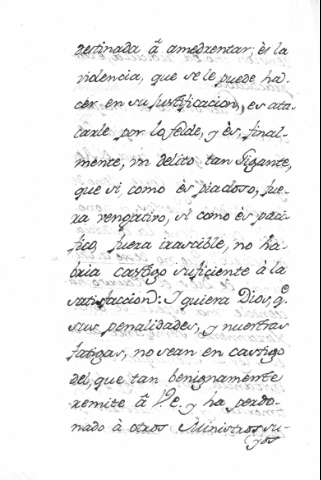 destinada â amedrentar; ès la
violencia, que se le puede ha-
cer en su justificacion, es ata-
carle por lo feide, y ès, final-
mente, un delito tan Gigante,
que si, como ès piadoso, fue-
ra vengativo, si como ès paci-
fico, fuera irascible, no ha-
bria castigo suficiente â la
satisfaccion: Y quiera Dios, q.e
sus penalidades, y nuestras
fatigas, no sean en castigo
del, que tan benignamente
remite â V.E. y ha perdo-
nado à otros Ministros su-
yos